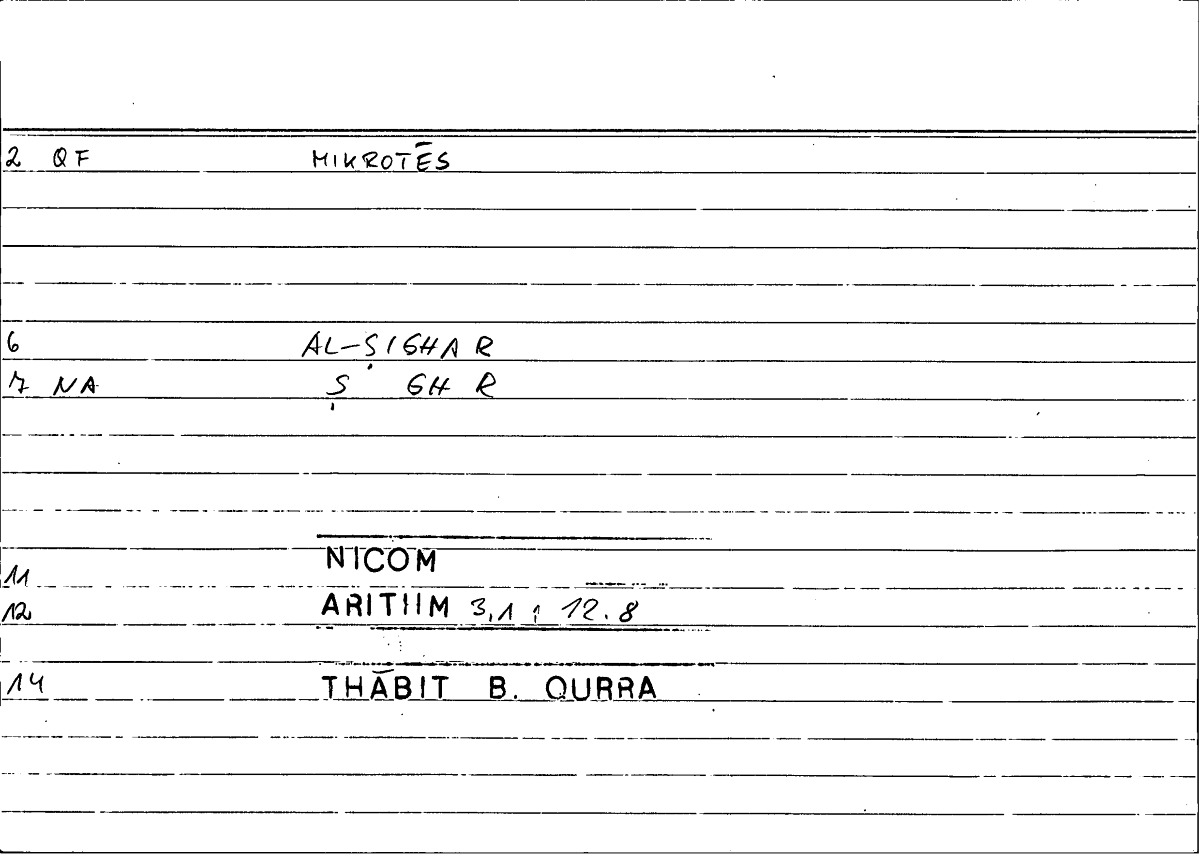 2 QF MIKROTĒS
6 AL-ṢIGHAR
7 NA Ṣ GH R
11 NICOM
12 ARITHM 3,1; 12.8
14 THĀBIT B. QURRA